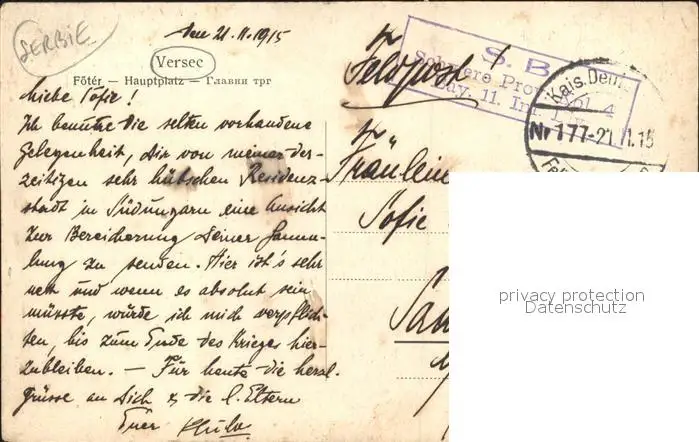 SERBIE
den 21. 11. 1915
Versec
Főtér — Hauptplatz — Главни трг
Liebe Sofie!
Ich benütze die selten vorhandene
Gelegenheit, dir von meiner der-
zeitigen sehr hübschen Residenz-
stadt in Südungarn eine Ansicht
zur Bereicherung deiner Samm-
lung zu senden. Hier ist's sehr
nett und wenn es absolut sein
müsste, würde ich mich verpflich-
ten, bis zum Ende des Krieges hier-
zubleiben. — Für heute die herzl.
Grüsse an dich & die l. Eltern
Euer
Feldpost
S. B.
Schwere Prov. Kol. 4
Bay. 11. Inf.
Kais. Deut
Nr 177 - 21 11.15
Fräulein
Sofie
privacy protection
Datenschutz